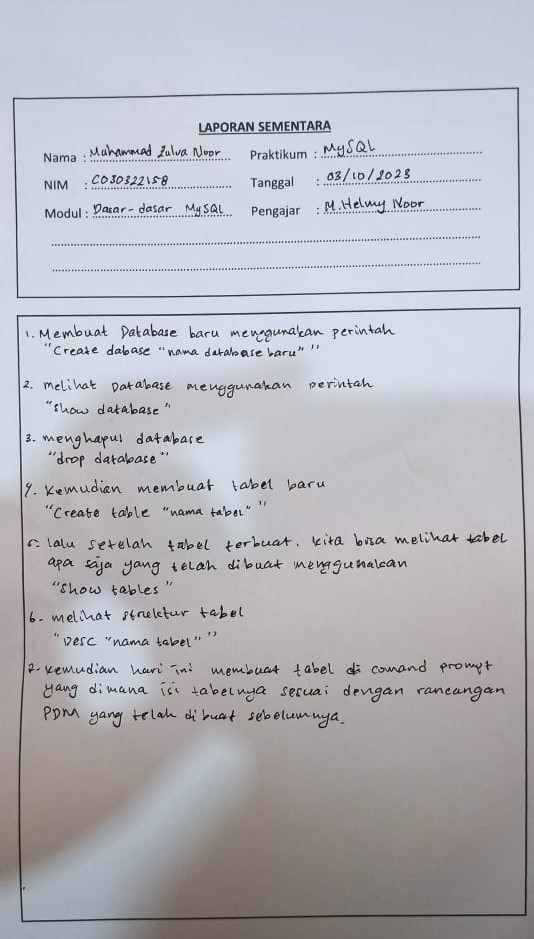 LAPORAN SEMENTARA
Nama : Muhammad Zulva Noor Praktikum : MySQL
NIM : C030322158 Tanggal : 03/10/2023
Modul : Dasar-dasar MySQL Pengajar : M.Helmy Noor
1. Membuat Database baru menggunakan perintah
"Create dabase "nama database baru" "
2. melihat Database menggunakan perintah
"Show database"
3. menghapus database
"drop database"
4. Kemudian membuat tabel baru
"Create table "nama tabel" "
5. lalu setelah tabel terbuat. kita bisa melihat tabel
apa saja yang telah dibuat menggunakan
"Show tables"
6. melihat struktur tabel
"Desc "nama tabel" "
7. kemudian hari ini membuat tabel di comand prompt
yang dimana isi tabelnya sesuai dengan rancangan
PDM yang telah dibuat sebelumnya.